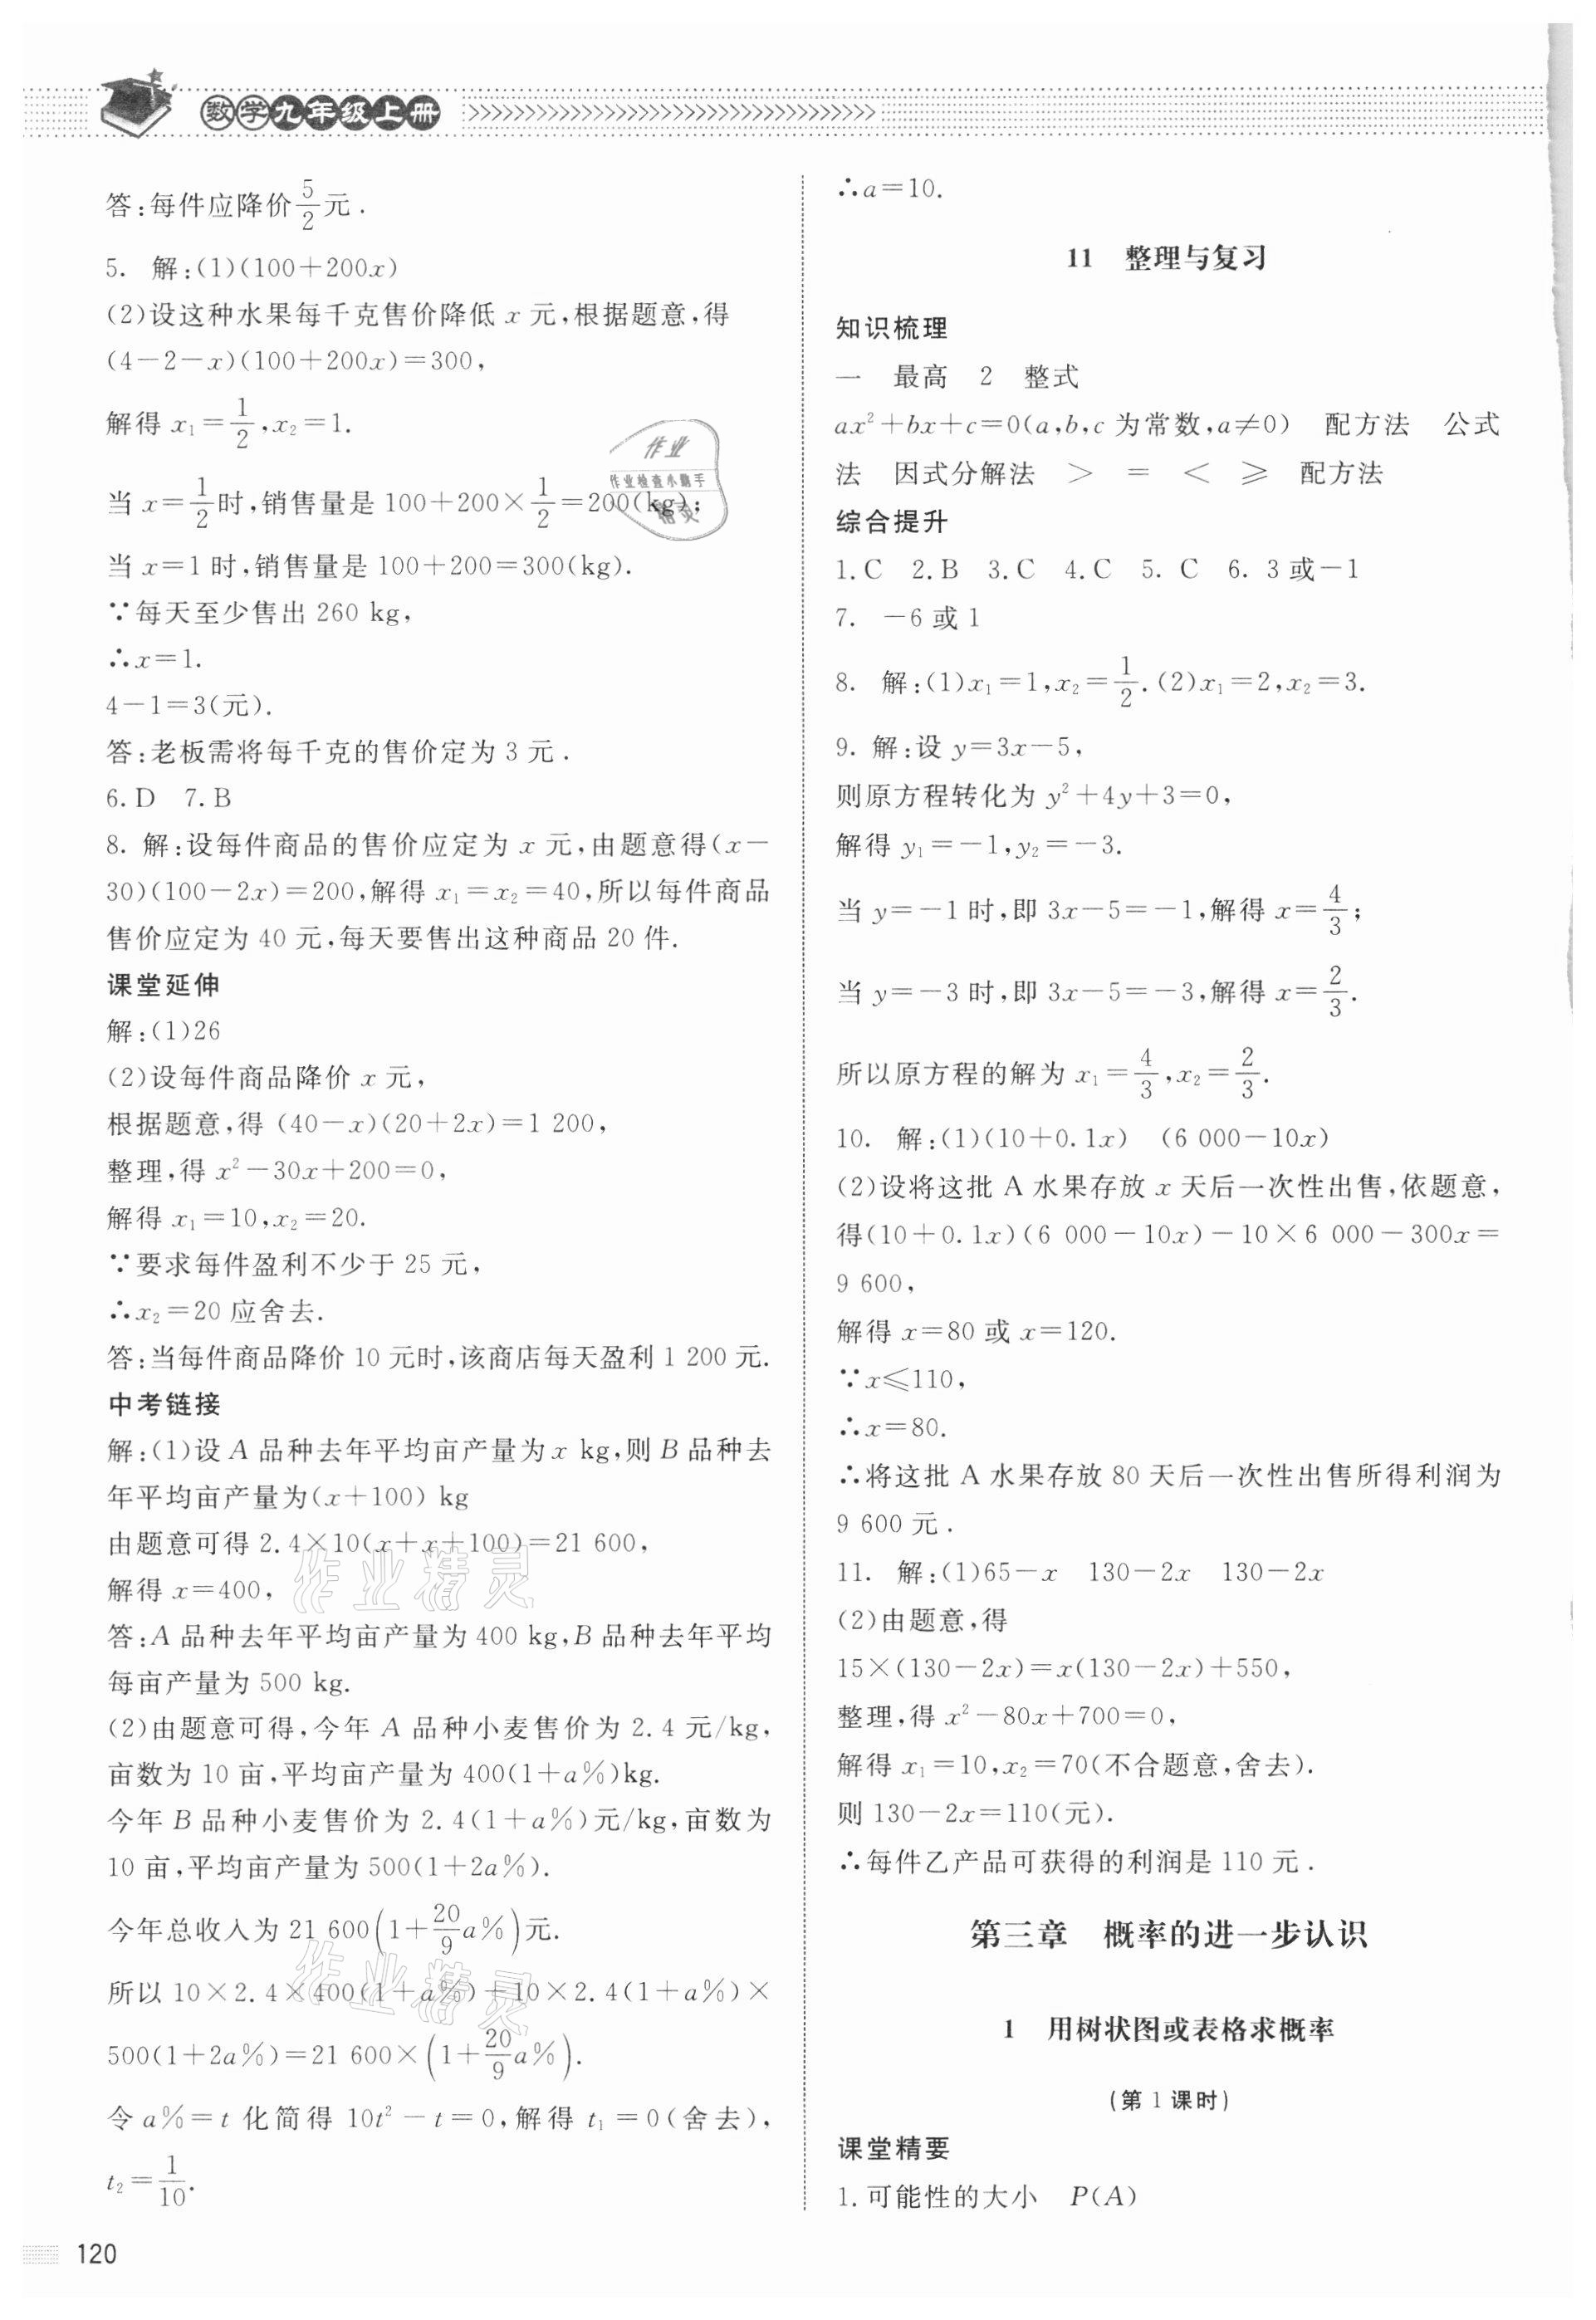 数学九年级上册
答:每件应降价5/2元.
5. 解:(1)(100+200x)
(2)设这种水果每千克售价降低 x 元,根据题意,得
(4-2-x)(100+200x)=300,
解得 x₁=1/2,x₂=1.
当 x=1/2时,销售量是 100+200×1/2=200(kg);
当 x=1 时,销售量是 100+200=300(kg).
∵每天至少售出 260 kg,
∴x=1.
4-1=3(元).
答:老板需将每千克的售价定为 3 元.
6.D 7.B
8. 解:设每件商品的售价应定为 x 元,由题意得(x-
30)(100-2x)=200,解得 x₁=x₂=40,所以每件商品
售价应定为 40 元,每天要售出这种商品 20 件.
课堂延伸
解:(1)26
(2)设每件商品降价 x 元,
根据题意,得 (40-x)(20+2x)=1 200,
整理,得 x²-30x+200=0,
解得 x₁=10,x₂=20.
∵要求每件盈利不少于 25 元,
∴x₂=20 应舍去.
答:当每件商品降价 10 元时,该商店每天盈利 1 200 元.
中考链接
解:(1)设 A 品种去年平均亩产量为 x kg,则 B 品种去
年平均亩产量为(x+100) kg
由题意可得 2.4×10(x+x+100)=21 600,
解得 x=400,
答:A 品种去年平均亩产量为 400 kg,B 品种去年平均
每亩产量为 500 kg.
(2)由题意可得,今年 A 品种小麦售价为 2.4 元/kg,
亩数为 10 亩,平均亩产量为 400(1+a%)kg.
今年 B 品种小麦售价为 2.4(1+a%)元/kg,亩数为
10 亩,平均亩产量为 500(1+2a%).
今年总收入为 21 600(1+20/9a%)元.
所以 10×2.4×400(1+a%)+10×2.4(1+a%)×
500(1+2a%)=21 600×(1+20/9a%).
令 a%=t 化简得 10t²-t=0,解得 t₁=0(舍去),
t₂=1/10.
120
∴a=10.
11 整理与复习
知识梳理
一 最高 2 整式
ax²+bx+c=0(a,b,c 为常数,a≠0) 配方法 公式
法 因式分解法 > = < ≥ 配方法
综合提升
1.C 2.B 3.C 4.C 5. C 6. 3 或-1
7. -6 或 1
8. 解:(1)x₁=1,x₂=1/2.(2)x₁=2,x₂=3.
9. 解:设 y=3x-5,
则原方程转化为 y²+4y+3=0,
解得 y₁=-1,y₂=-3.
当 y=-1 时,即 3x-5=-1,解得 x=4/3;
当 y=-3 时,即 3x-5=-3,解得 x=2/3.
所以原方程的解为 x₁=4/3,x₂=2/3.
10. 解:(1)(10+0.1x) (6 000-10x)
(2)设将这批 A 水果存放 x 天后一次性出售,依题意,
得(10+0.1x)(6 000-10x)-10×6 000-300x=
9 600,
解得 x=80 或 x=120.
∵x⩽110,
∴x=80.
∴将这批 A 水果存放 80 天后一次性出售所得利润为
9 600 元.
11. 解:(1)65-x 130-2x 130-2x
(2)由题意,得
15×(130-2x)=x(130-2x)+550,
整理,得 x²-80x+700=0,
解得 x₁=10,x₂=70(不合题意,舍去).
则 130-2x=110(元).
∴每件乙产品可获得的利润是 110 元.
第三章 概率的进一步认识
1 用树状图或表格求概率
(第 1 课时)
课堂精要
1.可能性的大小 P(A)
作业
作业检查小助手
精灵
作业精灵
作业精灵